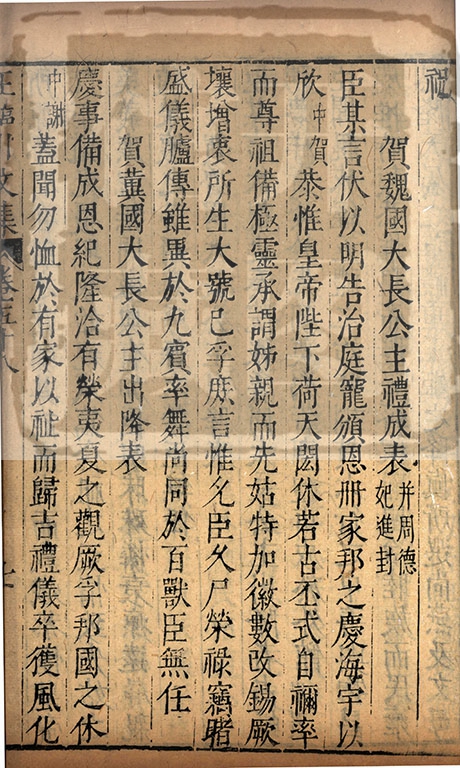 祝
賀魏國大長公主禮成表并周德妃進封
臣某言伏以明告治庭寵頒恩冊家邦之慶海宇以
欣中賀恭惟皇帝陛下荷天閎休若古丕式自禰率
而尊祖備極靈承謂姊親而先姑特加徽數改錫厥
壤增衷所生大號已孚庶言惟允臣久尸榮祿竊睹
盛儀臚傳雖異於九賓率舞尚同於百獸臣無任
賀冀國大長公主出降表
慶事備成恩紀隆洽有榮夷夏之觀厥孚邦國之休
中謝蓋聞勿恤於有家以祉而歸吉禮儀卒獲風化
王臨川文集 卷五十八